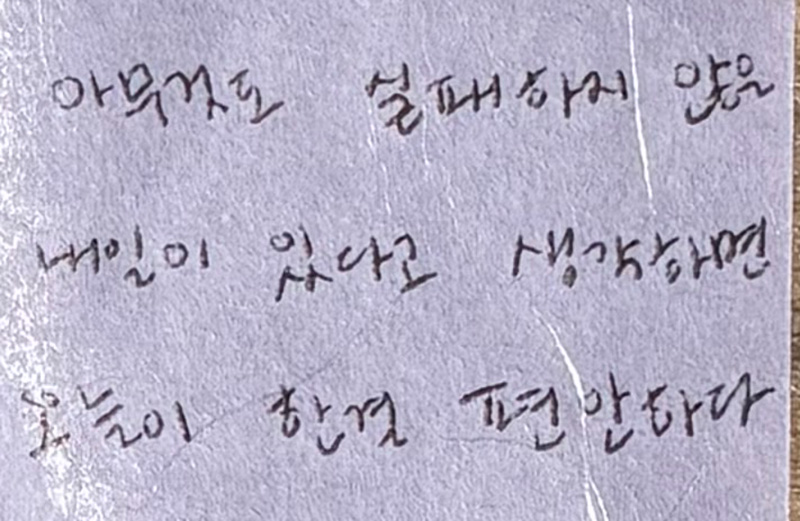 아무것도 실패하지 않은
내일이 있다고 생각하면
오늘이 한결 편안하다